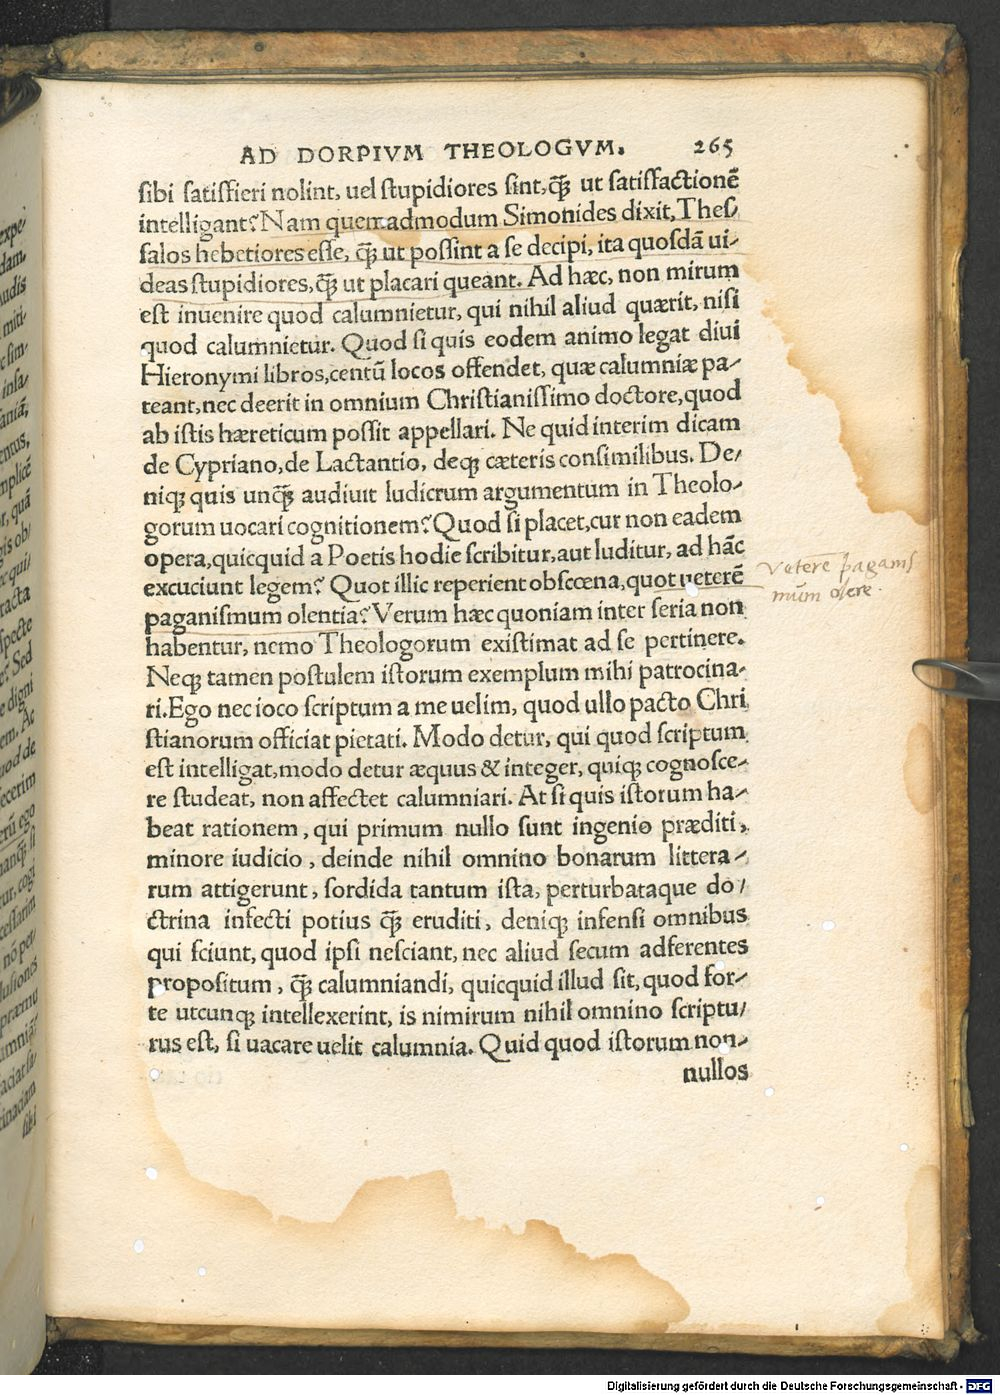 AD DORPIVM THEOLOGVM. 265
sibi satisfieri nolint, uel stupidiores sint, q̃ȝ ut satisfactionẽ
intelligant? Nam quemadmodum Simonides dixit, Thes/
salos hebetiores esse, q̃ȝ ut possint a se decipi, ita quosdã ui-
deas stupidiores, q̃ȝ ut placari queant. Ad hæc, non mirum
est inuenire quod calumnietur, qui nihil aliud quærit, nisi
quod calumnietur. Quod si quis eodem animo legat diui
Hieronymi libros, centũ locos offendet, quæ calumniæ pa-
teant, nec deerit in omnium Christianissimo doctore, quod
ab istis hæreticum possit appellari. Ne quid interim dicam
de Cypriano, de Lactantio, deqȝ cæteris consimilibus. De/
niqȝ quis unq̃ȝ audiuit ludicrum argumentum in Theolo-
gorum uocari cognitionem? Quod si placet, cur non eadem
opera, quicquid a Poetis hodie scribitur, aut luditur, ad hãc
excuciunt legem? Quot illic reperient obscœna, quot ueterẽ
paganismum olentia? Verum hæc quoniam inter seria non
habentur, nemo Theologorum existimat ad se pertinere.
Neqȝ tamen postulem istorum exemplum mihi patrocina-
ri. Ego nec ioco scriptum a me uelim, quod ullo pacto Chri
stianorum officiat pietati. Modo detur, qui quod scriptum
est intelligat, modo detur æquus & integer, quiqȝ cognosce-
re studeat, non affectet calumniari. At si quis istorum ha-
beat rationem, qui primum nullo sunt ingenio præditi,
minore iudicio, deinde nihil omnino bonarum littera-
rum attigerunt, sordida tantum ista, perturbataque do/
ctrina infecti potius q̃ȝ eruditi, deniqȝ infensi omnibus
qui sciunt, quod ipsi nesciant, nec aliud secum adferentes
propositum, q̃ȝ calumniandi, quicquid illud sit, quod for-
te utcunqȝ intellexerint, is nimirum nihil omnino scriptu/
rus est, si uacare uelit calumnia. Quid quod istorum non-
nullos
Veterẽ paganis
mũm olere
Digitalisierung gefördert durch die Deutsche Forschungsgemeinschaft - DFG